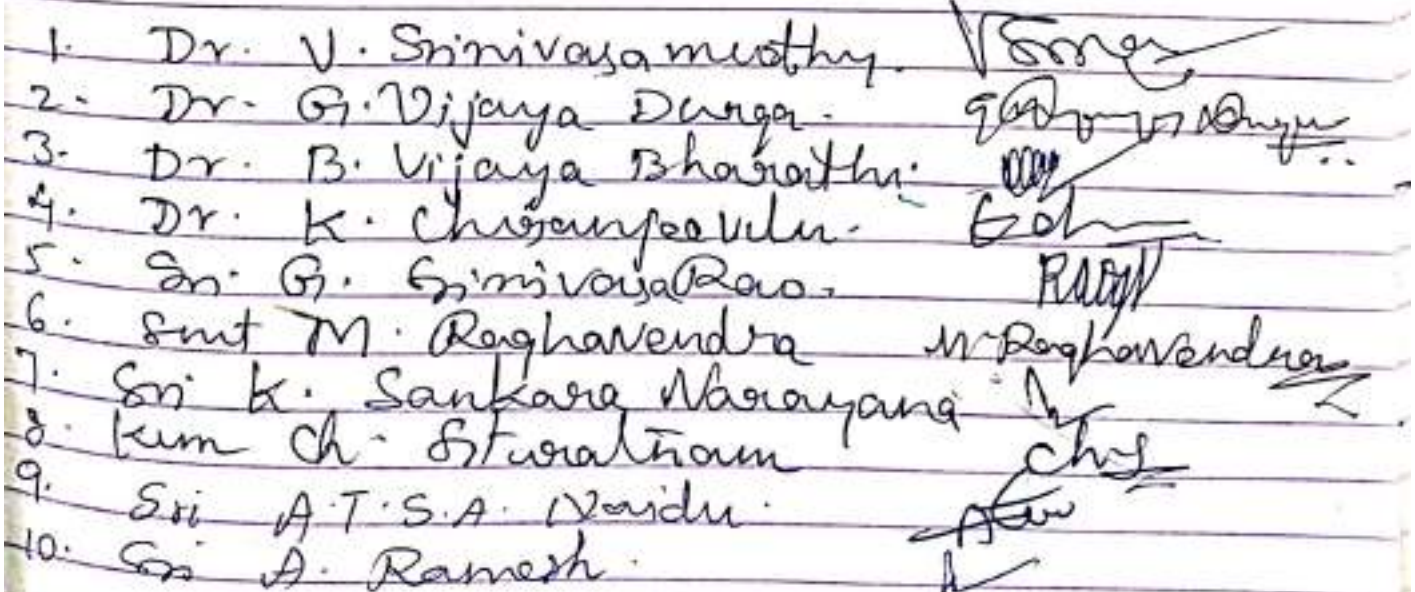 1. Dr. V. Srinivasamurthy.
2. Dr. G. Vijaya Durga.
3. Dr. B. Vijaya Bharathi.
4. Dr. K. Chiranjeevulu.
5. Sri. G. SrinivasaRao.
6. Smt M. Raghavendra M Raghavendra
7. Sri K. Sankara Narayana
8. Kum Ch.
9. Sri A.T.S.A. Naidu.
10. Sri A. Ramesh.